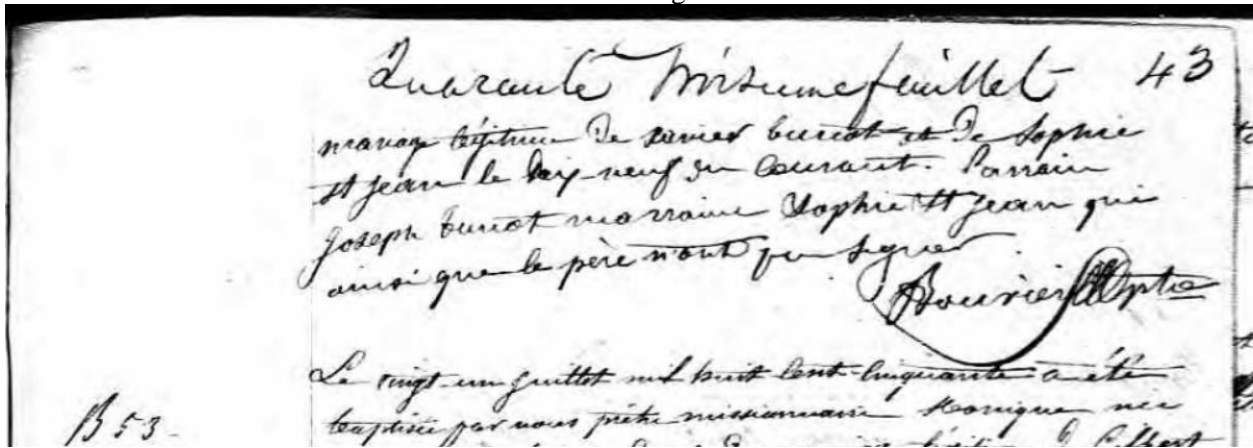 Quarante troisieme feuillet 43
mariage légitime de Xavier buriot et de Sophie
St Jean le dix-neuf du Courant. Parrain
Joseph buriot marraine Sophie St Jean qui
ainsi que le père n'ont pu signer
ptre
Le vingt-un juillet mil huit Cent-Cinquante a été
baptisée par nous prêtre missionnaire Monique née
B 53-
légitime de